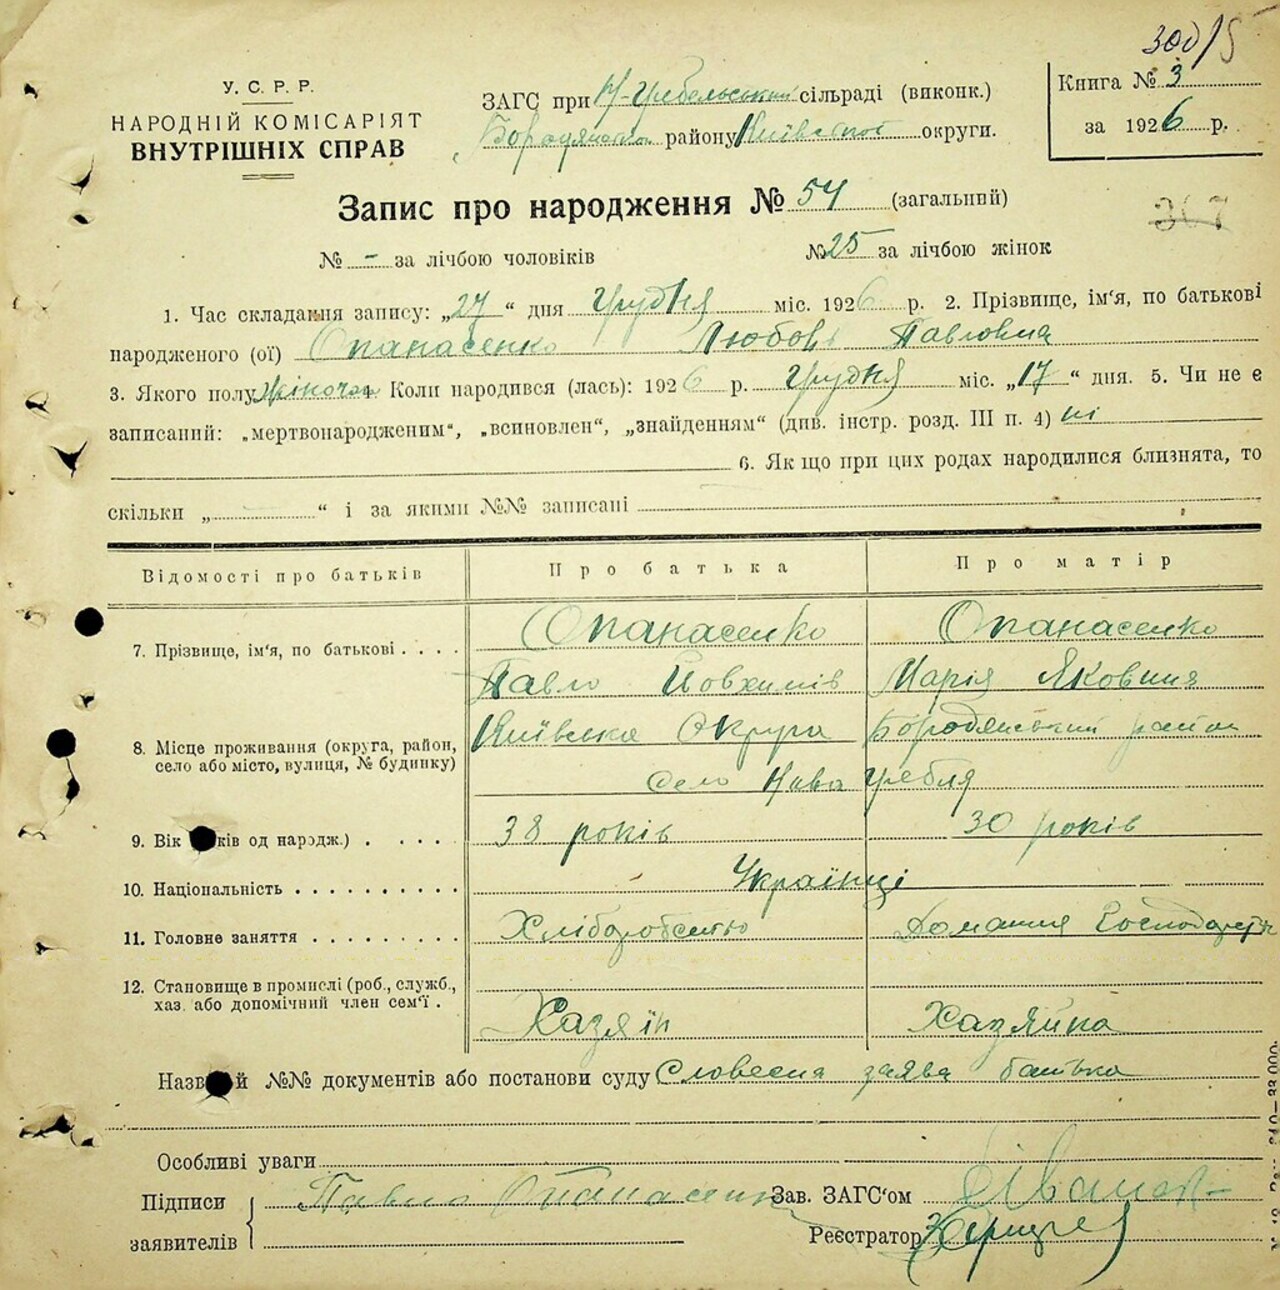 300/5
У. С. Р. Р.
НАРОДНІЙ КОМІСАРІЯТ
ВНУТРІШНІХ СПРАВ
ЗАГС при Н-Гребельській сільраді (виконк.)
Бородянськ району Київської округи.
Книга № 3
за 1926 р.
Запис про народження № 54 (загальний)
367
№ - за лічбою чоловіків № 25 за лічбою жінок
1. Час складання запису: „27“ дня Грудня міс. 1926 р. 2. Прізвище, ім‘я, по батькові
народженого (ої) Опанасенко Любовь Павловна
3. Якого полу жіноч 4 Коли народився (лась): 1926 р. Грудня міс. „17“ дня. 5. Чи не є
записаний: „мертвонародженим“, „всиновлен“, „знайденням“ (див. інстр. розд. III п. 4) ні
6. Як що при цих родах народилися близнята, то
скільки „ “ і за якими №№ записані
Відомості про батьків Про батька Про матір
7. Прізвище, ім‘я, по батькові . . . . Опанасенко Опанасенко
Павло Йовхимів Марія Яковина
8. Місце проживання (округа, район, село або місто, вулиця, № будинку) Київська Округа Бородянський район
село Нова Гребля
9. Вік ків од народж.) . . . . 38 років 30 років
10. Національність . . . . . . . . . . Українці
11. Головне заняття . . . . . . . . . Хліборобство Домашня Господарств
12. Становище в промислі (роб., служб., хаз. або допомічний член сем‘ї . Хазяїн Хазяйка
Назв й №№ документів або постанови суду Словесна заява батька
Особливі уваги
Підписи заявителів Павло Опанасенко
Зав. ЗАГС‘ом
Реєстратор